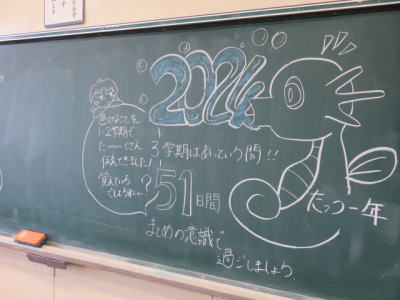 2024
色々なことを
1・2学期で
た〜〜くさん
伝えてきました!
覚えている
でしょうね…?
3学期はあっていう間!!
51日間
まとめの意識で
過ごしましょう
たつ一年